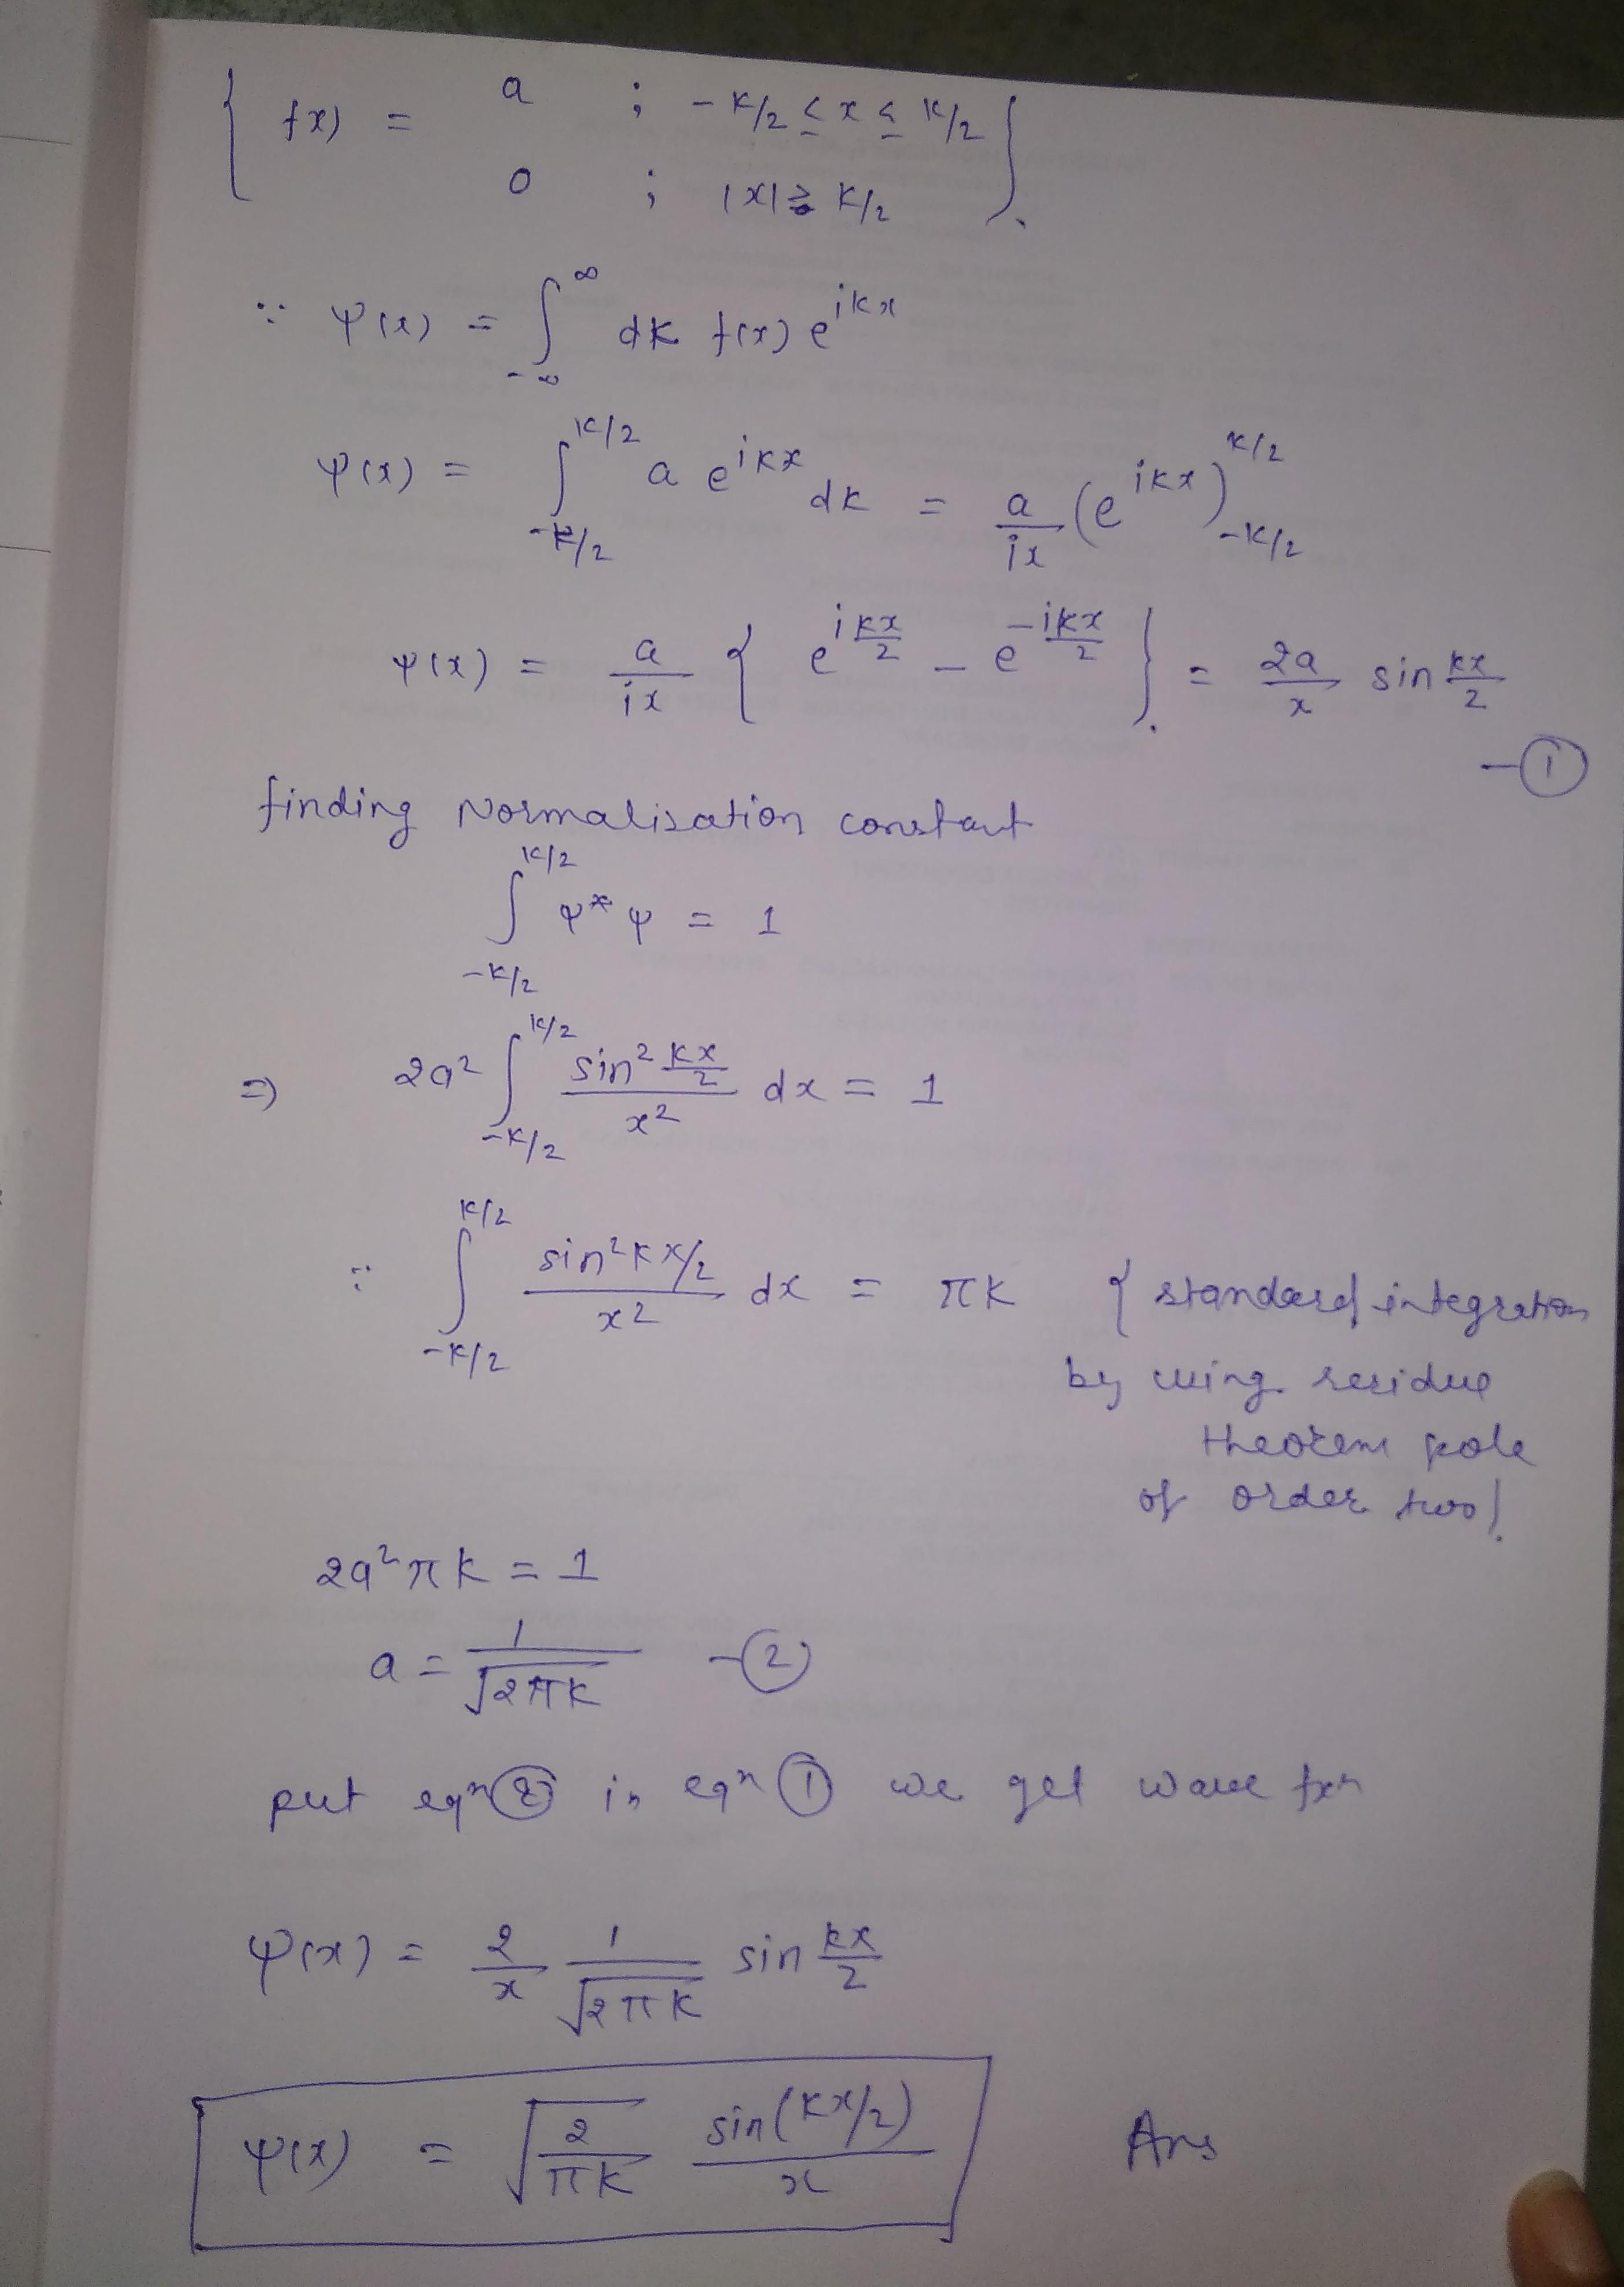 { f(x) = a ; -K/2 ≤ x ≤ K/2
0 ; |x| ≥ K/2 }.
∵ ψ(x) = ∫_{-∞}^{∞} dK f(x) e^{ikx}
ψ(x) = ∫_{-K/2}^{K/2} a e^{ikx} dK = a/ix (e^{ikx})_{-K/2}^{K/2}
ψ(x) = a/ix { e^{i kx/2} - e^{-ikx/2} }. = 2a/x sin kx/2
-①
finding Normalisation constant
∫_{-K/2}^{K/2} ψ*ψ = 1
⇒ 2a² ∫_{-K/2}^{K/2} sin² kx/2 / x² dx = 1
∵ ∫_{-K/2}^{K/2} sin² kx/2 / x² dx = πK { standard integration
by using residue
theorem pole
of order two}.
2a²πK = 1
a = 1/√2πK -②
put eqⁿ② in eqⁿ① we get wave fxⁿ
ψ(x) = 2/x 1/√2πK sin kx/2
ψ(x) = √(2/πK) sin(kx/2)/x Ans